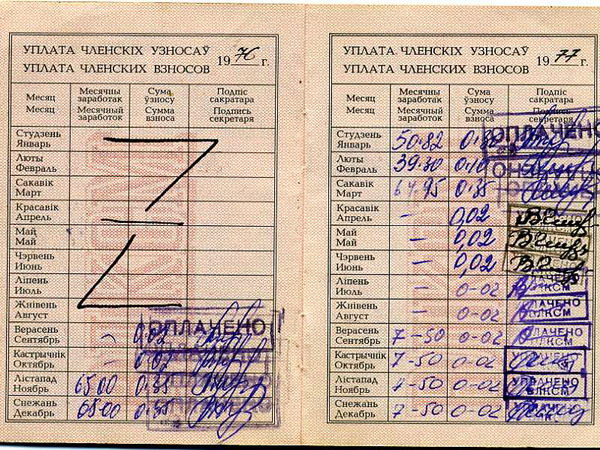 УПЛАТА ЧЛЕНСКІХ УЗНОСАЎ
УПЛАТА ЧЛЕНСКИХ ВЗНОСОВ 1976 г.
Месяц Месячны заработак Сума ўзносу Подпіс сакратара
Месяц Месячный заработок Сумма взноса Подпись секретаря
Студзень
Январь
Люты
Февраль
Сакавік
Март
Красавік
Апрель
Май
Май
Чэрвень
Июнь
Ліпень
Июль
Жнівень
Август
ОПЛАЧЕНО
Верасень
Сентябрь — 0,02
Кастрычнік
Октябрь — 0,02
Лістапад
Ноябрь 65 00 0,35
Снежань
Декабрь 65 00 0,35
УПЛАТА ЧЛЕНСКІХ УЗНОСАЎ
УПЛАТА ЧЛЕНСКИХ ВЗНОСОВ 1977 г.
Месяц Месячны заработак Сума ўзносу Подпіс сакратара
Месяц Месячный заработок Сумма взноса Подпись секретаря
Студзень
Январь 50.82 ОПЛАЧЕНО
Люты
Февраль 39.30 0,10
Сакавік
Март 64.95 0,35
Красавік
Апрель — 0,02
Май
Май — 0,02
Чэрвень
Июнь — 0,02
Ліпень
Июль — 0-02 ОПЛАЧЕНО
Жнівень
Август — 0-02 ОПЛАЧЕНО
Верасень
Сентябрь 7-50 0-02 ОПЛАЧЕНО ВЛКСМ
Кастрычнік
Октябрь 7-50 0-02
Лістапад
Ноябрь 7-50 0-02 ОПЛАЧЕНО ВЛКСМ
Снежань
Декабрь 7-50 0-02